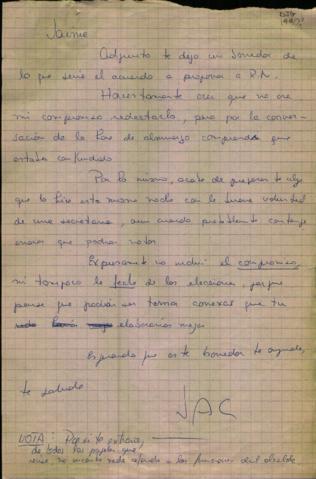 Jaime
Adjunto te dejo un borrador de
lo que sería el acuerdo a proponer a R.N.
creí que no era
mi compromiso redactarlo, pero por la conver-
sación de la hora de almuerzo comprendí que
estaba confundido.
Por lo mismo, acabo de preparar te algo
que lo hice esta misma noche con la buena voluntad
de una secretaria, aun cuando probablemente contenga
errores que podrías notar.
Expresamente no incluí el compromiso,
ni tampoco la fecha de las elecciones, porque
pienso que podrían ser temas conexos que tu
elaborarías mejor
Esperando que este borrador te ayude,
te saluda
JAC
NOTA:
de todos los papeles que